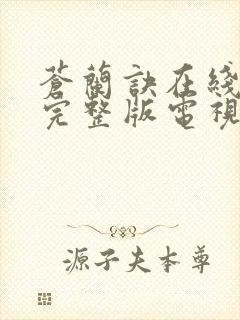 蒼蘭訣在綫
完整版電視
源子夫本尊